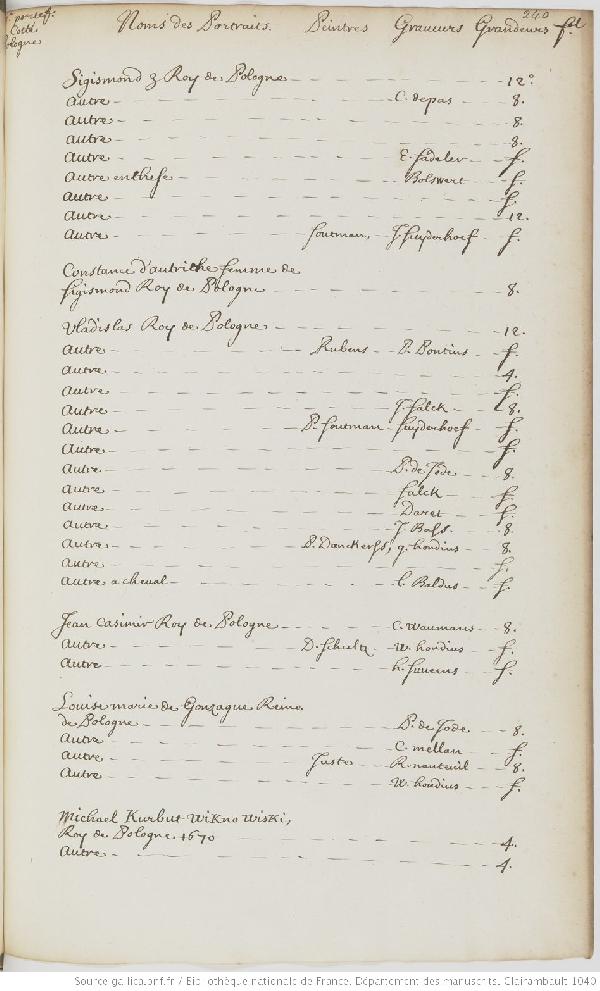 240
portef.
Cotté
Pologne
Noms des Portraits. Peintres Graveurs Grandeurs fol
Sigismond 3 Roy de Pologne 12°
Autre C. depas 8.
Autre 8.
Autre 8.
Autre E. Sadeler f.
Autre en these Bolswert f.
Autre f.
Autre 12.
Autre Soutman, J. Suyderhoef f.
Constance d'autriche femme de
Sigismond Roy de Pologne 8.
Vladislas Roy de Pologne 12.
Autre Rubens P. Pontius f.
Autre 4.
Autre f.
Autre J. falck 8.
Autre P. Soutman Suyderhoef f.
Autre f.
Autre P. de Jode 8.
Autre falck f.
Autre Daret f.
Autre J. Bass. 8.
Autre P. Danckerss, g. hondius 8.
Autre f.
Autre a cheval l. Baldus f.
Jean Casimir Roy de Pologne C. Waumans 8.
Autre D. Schultz W. hondius f.
Autre h. f.
Louise marie de Gonzague Reine
de Pologne P. de Jode 8.
Autre C. mellan f.
Autre Juste R. nanteuil 8.
Autre W. hondius f.
Michael Kurbut Wikno Wiski,
Roy de Pologne 1670 4.
Autre 4.
Source gallica.bnf.fr / Bibliothèque nationale de France. Département des manuscrits. Clairambault 1040